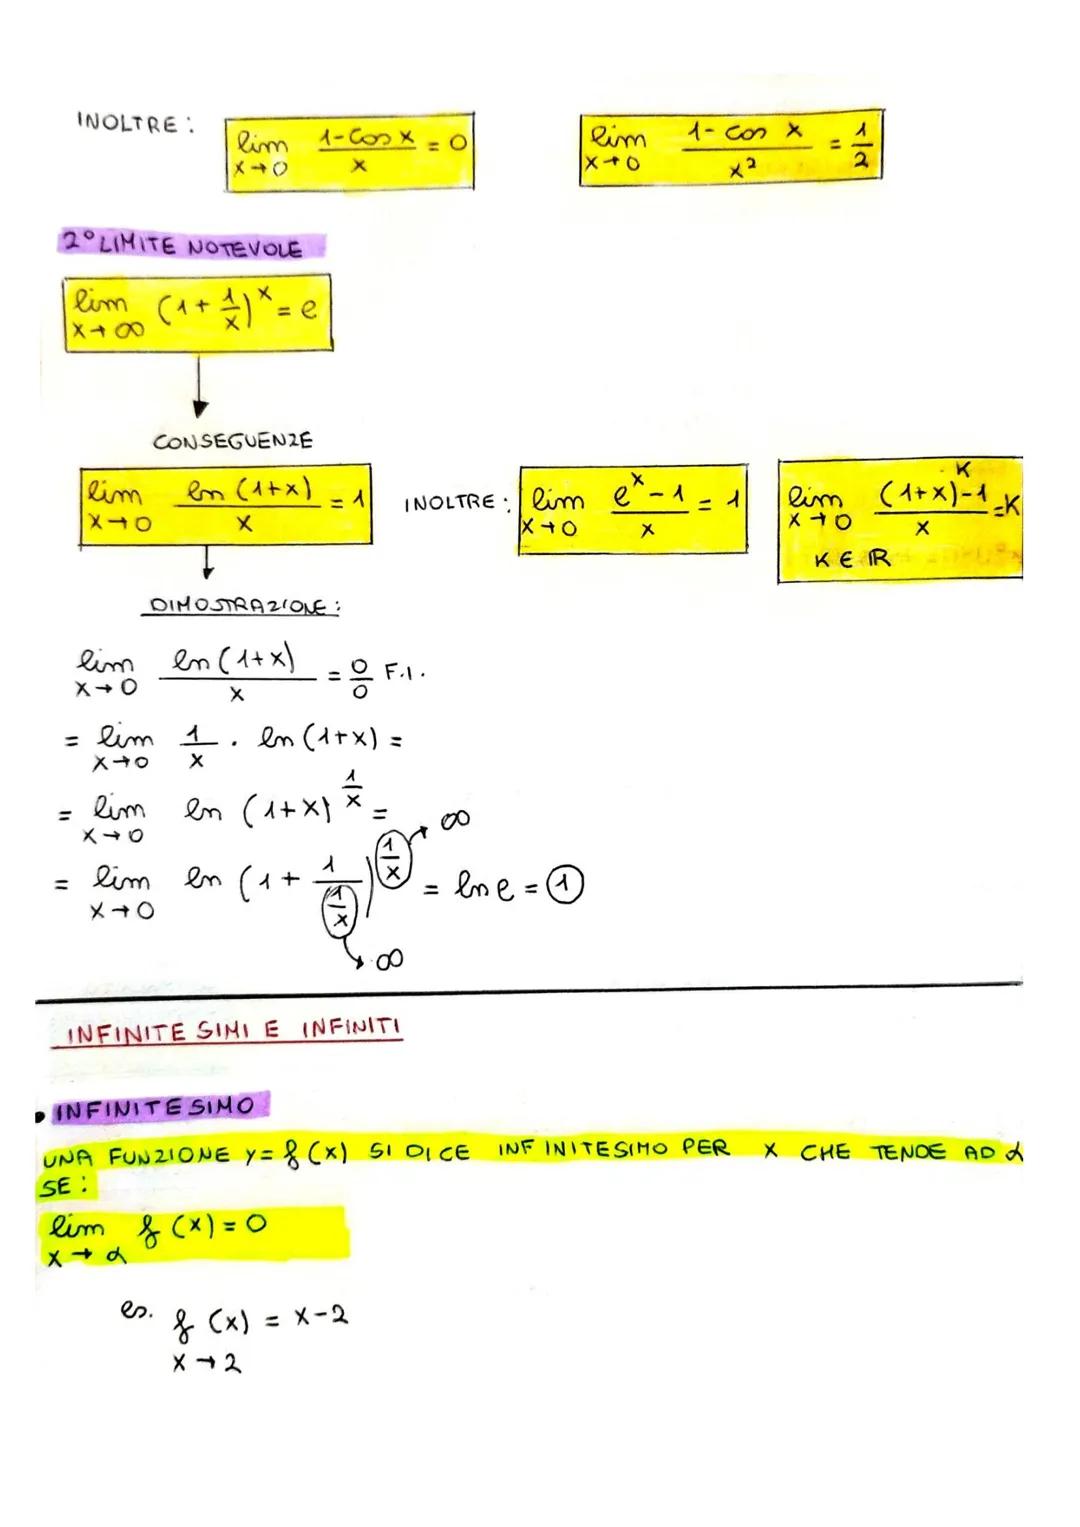 INOLTRE: lim x→0 (1-cos x)/x = 0   lim x→0 (1-cos x)/x² = 1/2
2° LIMITE NOTEVOLE
lim x→∞ (1+1/x)^x = e
CONSEGUENZE
lim x→0 ln(1+x)/x = 1   INOLTRE: lim x→0 (e^x-1)/x = 1   lim x→0 ((1+x)^K-1)/x = K
K ∈ IR
DIMOSTRAZIONE:
lim x→0 ln(1+x)/x = 0/0 F.I.
= lim x→0 1/x · ln(1+x) =
= lim x→0 ln(1+x)^(1/x) =
∞
= lim x→0 ln(1+1/(1/x))^(1/x) = ln e = 1
∞
INFINITESIMI E INFINITI
• INFINITESIMO
UNA FUNZIONE y=f(x) SI DICE INFINITESIMO PER X CHE TENDE AD α
SE:
lim x→α f(x)=0
es. f(x) = x-2
x→2